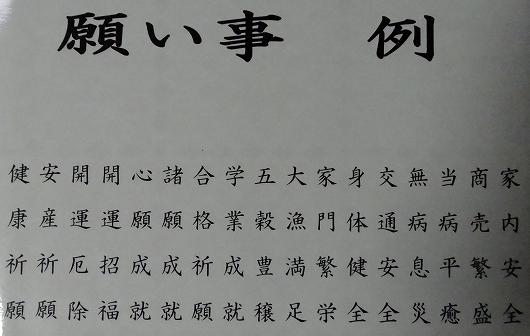 願い事 例
家内安全
商売繁盛
当病平癒
無病息災
交通安全
身体健全
家門繁栄
大漁満足
五穀豊穣
学業成就
合格祈願
諸願成就
心願成就
開運招福
開運厄除
安産祈願
健康祈願